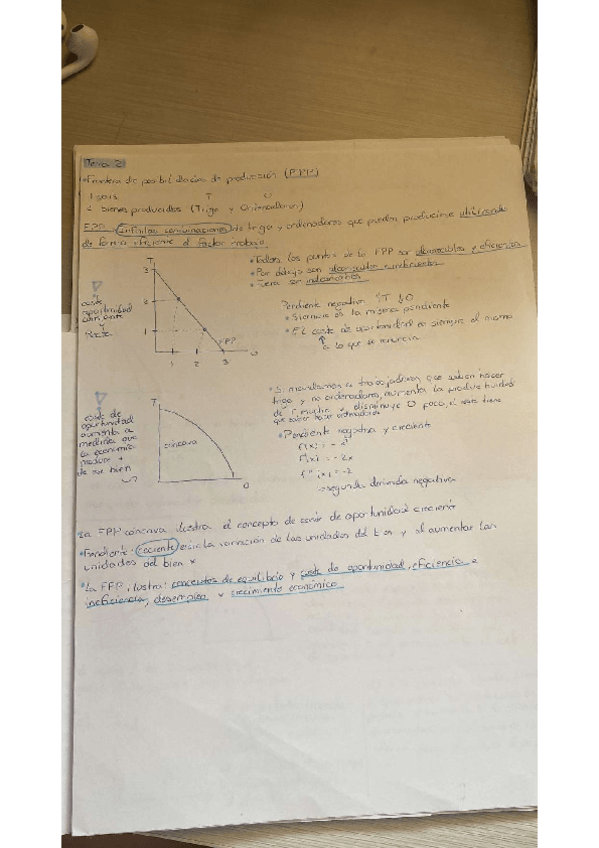 Tema 2:
• Frontera de posibilidades de producción (FPP)
1 país T O
2 bienes producidos (Trigo y Ordenadores)
FPP: infinitas combinaciones de trigo y ordenadores que pueden producirse utilizando
de forma eficiente el factor trabajo.
• Todos los puntos de la FPP son alcanzables y eficientes
• Por debajo son alcanzables e ineficientes
• Fuera son inalcanzables
T
3
2
1
FPP
1 2 3
O
coste
oportunidad
constante
y
Recta
Pendiente negativa ↑T ↓O
• Siempre es la misma pendiente
• El coste de oportunidad es siempre el mismo
↑
a lo que se renuncia
T
cóncava
O
coste de
oportunidad
aumenta a
medida que
la economía
produce +
de ese bien
• Si mandamos a trabajadores que saben hacer
trigo y no ordenadores, aumenta la productividad
de T mucha y disminuye O poco, el resto tiene
que saber hacer ordenadores
• Pendiente negativa y creciente
f(x) = - x²
f'(x) = - 2x
f''(x) = -2
→ segunda derivada negativa
La FPP cóncava ilustra el concepto de coste de oportunidad creciente
• Pendiente: cociente entre la variación de las unidades del bien y al aumentar las
unidades del bien x
• La FPP, ilustra: conceptos de equilibrio y coste de oportunidad, eficiencia e
ineficiencia, desempleo y crecimiento económico